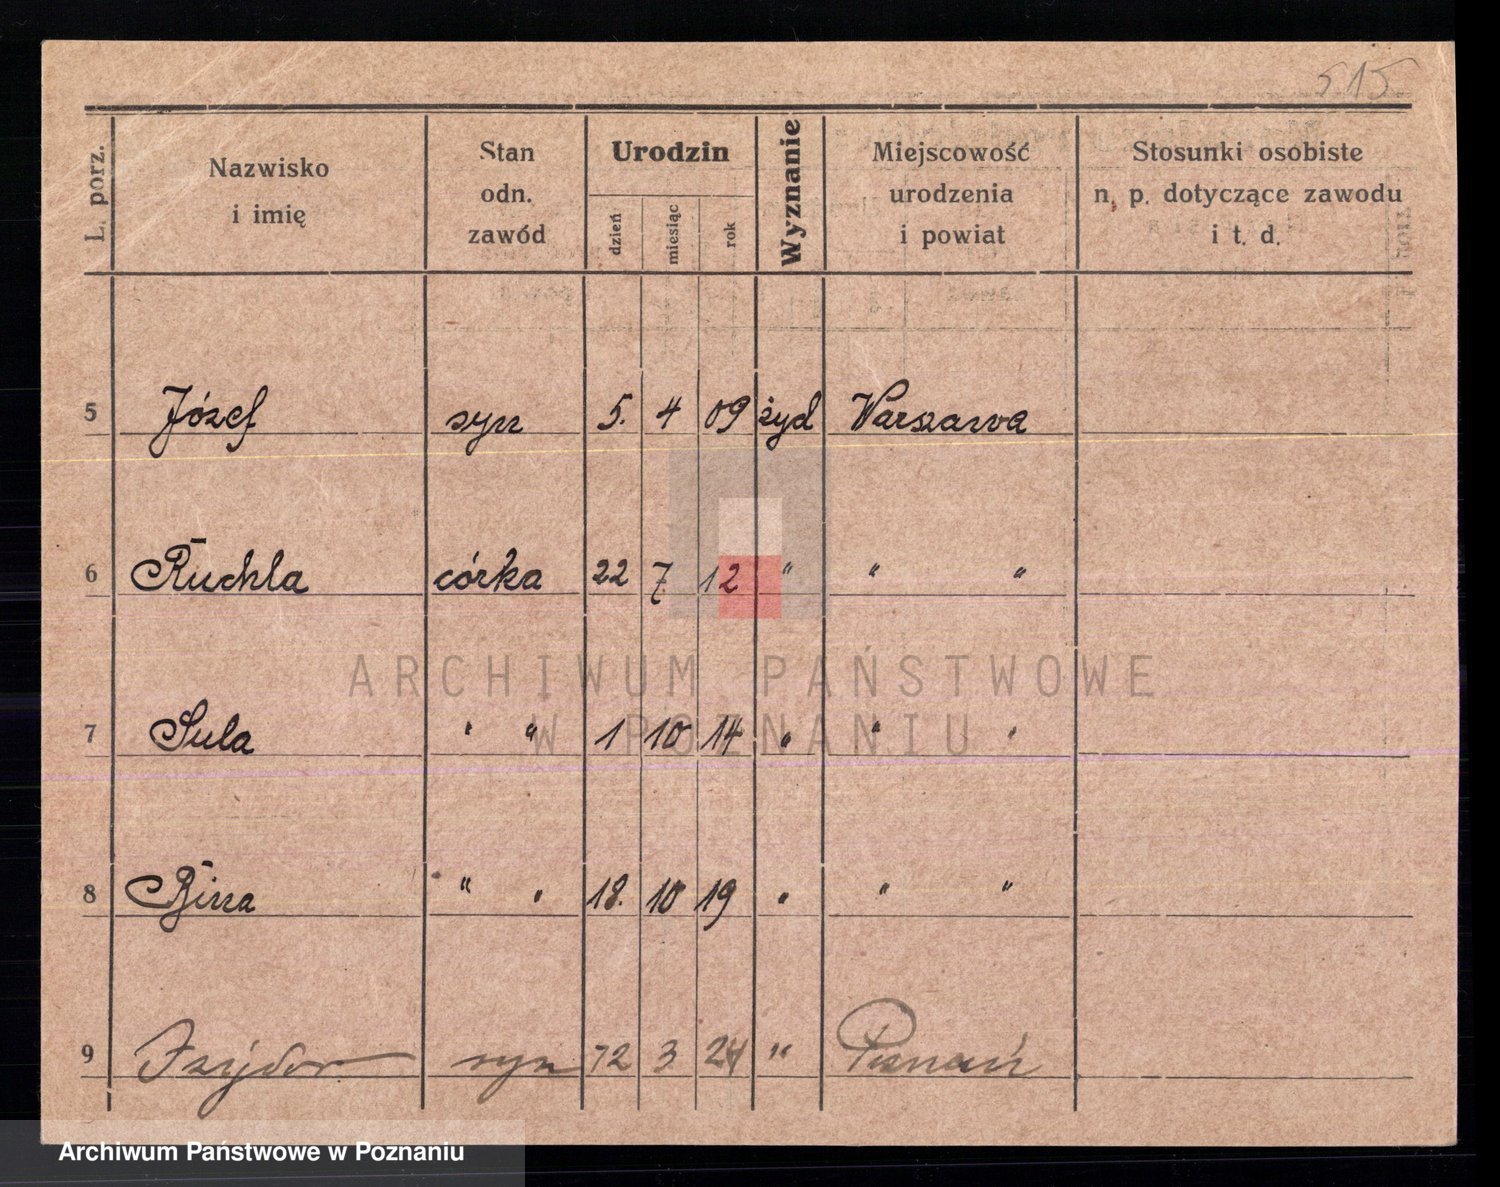 515
L. porz.
Nazwisko
i imię
Stan
odn.
zawód
Urodzin
dzień
miesiąc
rok
Wyznanie
Miejscowość
urodzenia
i powiat
Stosunki osobiste
n. p. dotyczące zawodu
i t. d.
5 Józef syn 5. 4 09 żyd Warszawa
6 Ruchla córka 22 7 12 " " "
7 Sula " " 1 10 14 " " "
8 Bina " " 18. 10 19 " " "
9 Izydor syn 12 3 24 " Poznań
ARCHIWUM PAŃSTWOWE
W POZNANIU
Archiwum Państwowe w Poznaniu